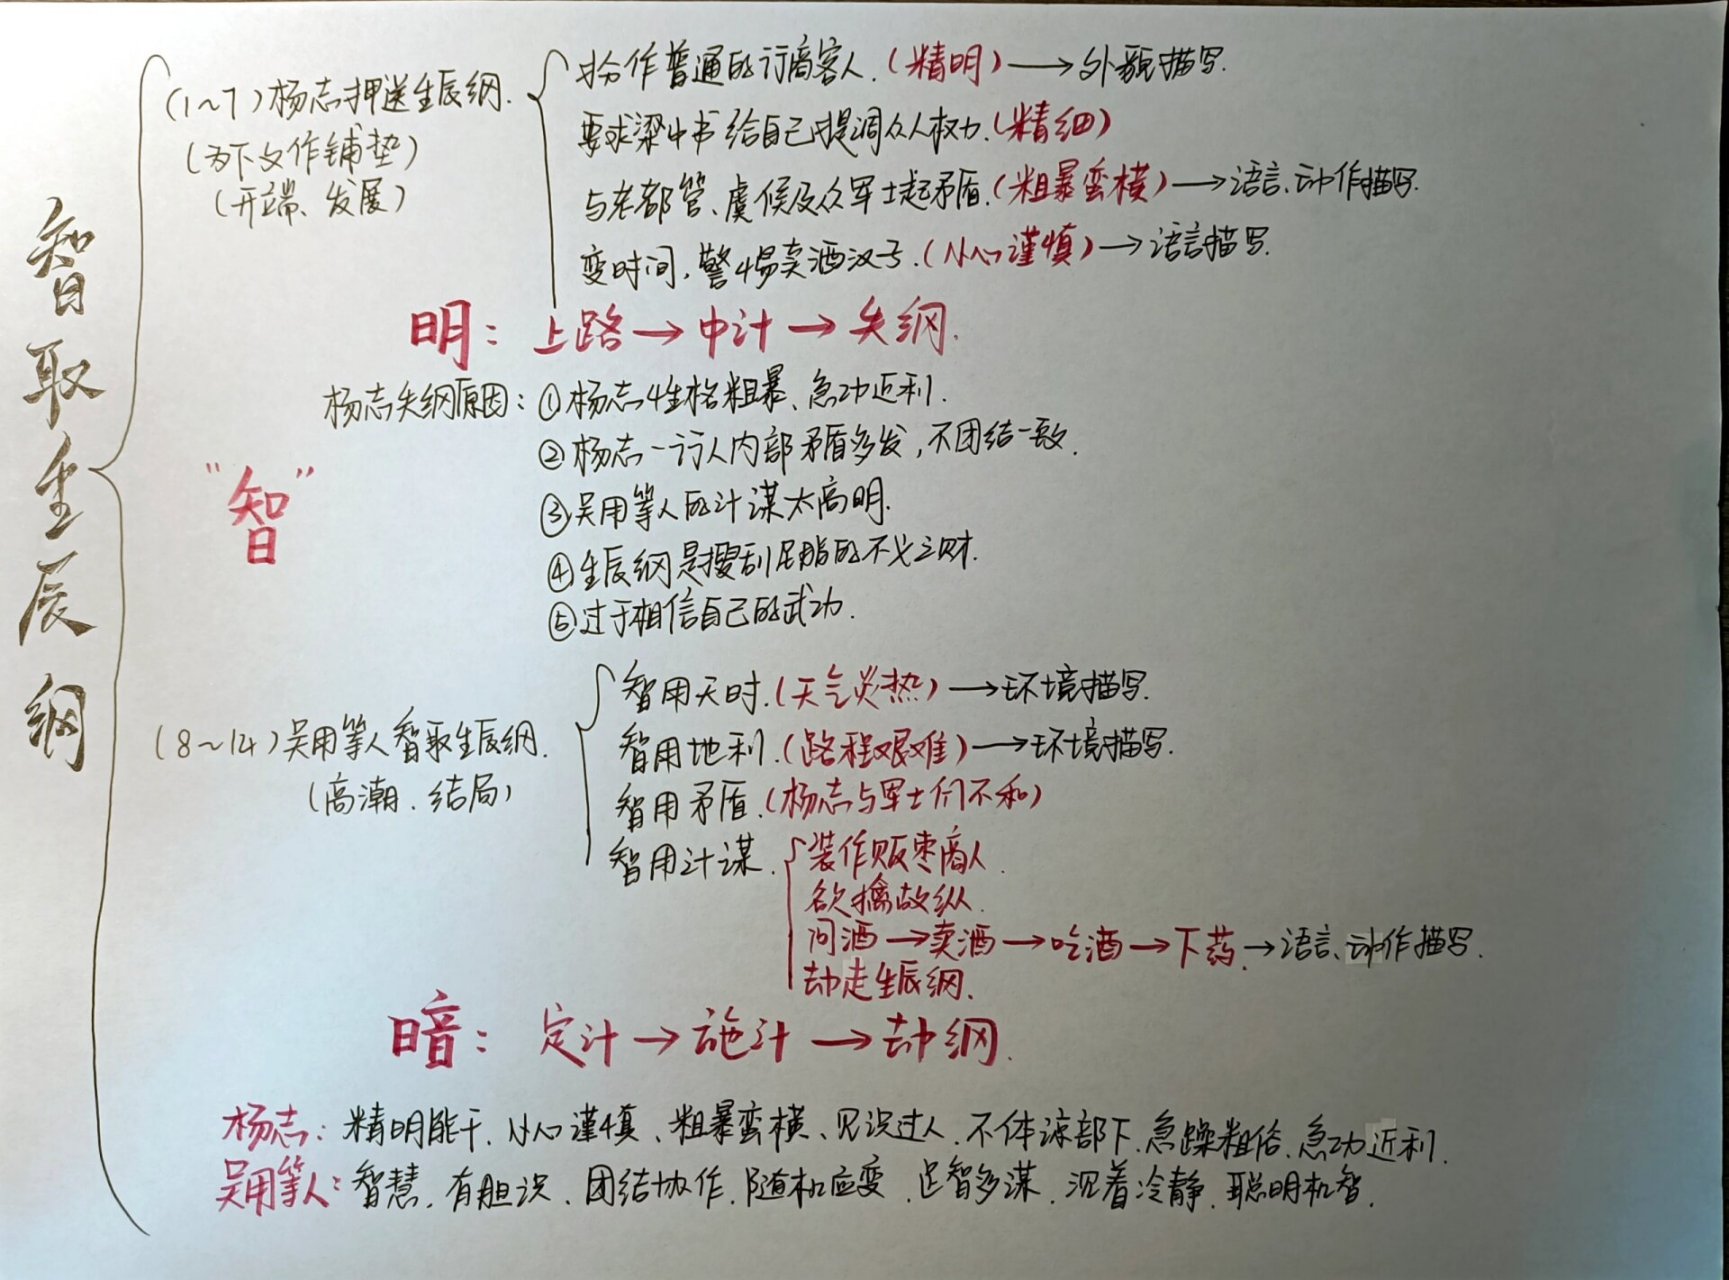 智取生辰纲
(1~7)杨志押送生辰纲.
(为下文作铺垫)
(开端、发展)
扮作普通的行商客人.(精明)→外貌描写.
要求梁中书给自己提调众人权力.(精细)
与老都管、虞候及众军士起矛盾.(粗暴蛮横)→语言、动作描写.
变时间,警惕卖酒汉子.(小心谨慎)→语言描写.
明:上路→中计→失纲.
杨志失纲原因:①杨志性格粗暴、急功近利.
②杨志一行人内部矛盾多发,不团结一致.
"智"
③吴用等人的计谋太高明.
④生辰纲是搜刮民脂的不义之财.
⑤过于相信自己的武功.
(8~14)吴用等人智取生辰纲.
(高潮、结局)
智用天时.(天气炎热)→环境描写.
智用地利.(路程艰难)→环境描写.
智用矛盾.(杨志与军士们不和)
智用计谋.
装作贩枣商人.
欲擒故纵.
问酒→卖酒→吃酒→下药.→语言、动作描写.
劫走生辰纲.
暗:定计→施计→劫纲.
杨志:精明能干、小心谨慎、粗暴蛮横、见识过人、不体谅部下、急躁粗俗、急功近利.
吴用等人:智慧、有胆识、团结协作、随机应变、足智多谋、沉着冷静、聪明机智.